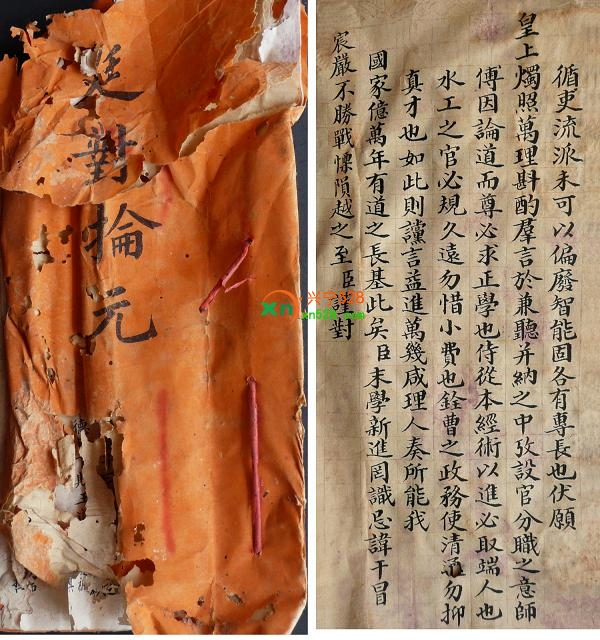 廷對掄元
循吏流派未可以偏廢智能固各有專長也伏願
皇上燭照萬理斟酌羣言於兼聽并納之中攷設官分職之意師
傅因論道而尊必求正學也侍從本經術以進必取端人也
水工之官必規久遠勿惜小費也銓曹之政務使清通勿抑
真才也如此則讜言益進萬幾咸理人奏所能我
國家億萬年有道之長基此矣臣末學新進罔識忌諱干冒
宸嚴不勝戰慄隕越之至臣謹對
xn 兴宁528
xn528.com